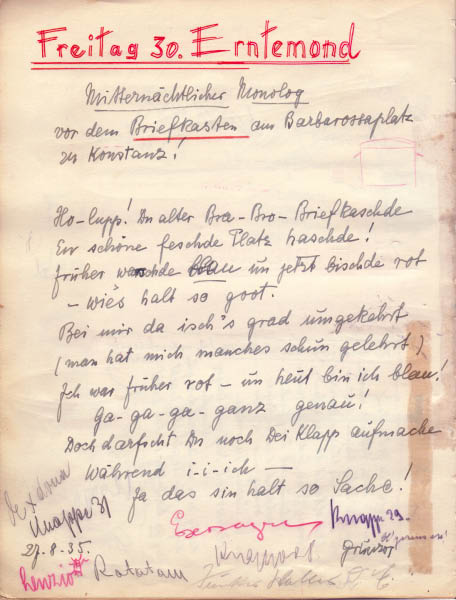 Freitag 30. Erntemond
Mitternächtlicher Monolog
vor dem Briefkasten am Barbarossaplatz
zu Konstanz!
Ho-lupp! Du alter Bra-Bro-Briefkaschde
En schöne feschde Platz haschde!
früher warschde blau un jetzt bischde rot
– wie's halt so goot.
Bei mir da isch's grad umgekehrt
(man hat mich manches schun gelehrt)
Ich war früher rot – un heut bin ich blau!
Ga-ga-ga-ganz genau!
Doch darfscht Du noch Dei Klapp aufmache
Während i-i-ich –
Ja das sin halt so Sache!
Knapp 31
27.8.35.
Knapp 29.
Ratatam